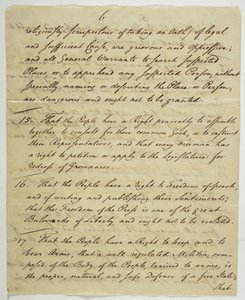 6
religiously scrupulous of taking an Oath) of legal
and sufficient Cause, are grievous and oppressive;
and all General Warrants to search suspected
Places, or to apprehend any suspected Person, without
specially naming or describing the Place or Person,
are dangerous and ought not to be granted.
15. That the People have a Right peaceably to assemble
together to consult for their common Good, or to instruct
their Representatives, and that every Freeman has
a right to petition or apply to the Legislature for
redress of Grievances.
16. That the People have a right to Freedom of Speech,
and of writing and publishing their Sentiments;
that the Freedom of the Press is one of the great
Bulwarks of Liberty and ought not to be violated.
17. That the People have a Right to keep and to
bear Arms; that a well regulated Militia, com-
posed of the Body of the People, trained to arms, is
the proper, natural, and safe Defence of a free State;
that